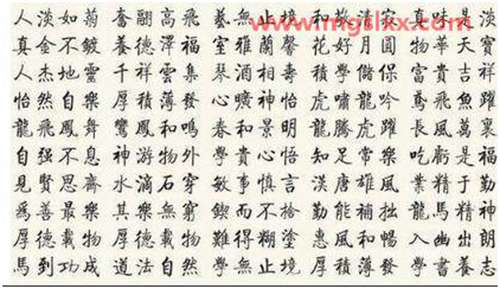 www.mgslxx.com
人淡如菊 奮翮高飛 藝無止境 和清 真是淡
真金不鍍 養德澤福 室雅蘭馨 花好月圓 物華天寶
人杰地靈 千祥雲集 琴酒相壽 積學儲 富貴吉祥
怡然自樂 厚積薄發 心曠神怡 虎嘯龍吟 鳶飛魚躍
龍飛鳳舞 鸞鳳和鳴 春和景明 龍騰虎躍 長風萬裏
自强不息 神游物外 和貴心悟 知足常樂 吃虧是福
見賢思齋 水滴石穿 敏事慎言 漢唐雄風 業精于勤
爲善最樂 其樂無窮 鍥而不捨 勤能補拙 龍馬精神
厚德載物 厚德載物 難得糊塗 惠風和暢 入幽出朗
馬到功成 道法自然 學無止境 厚積薄發 學書養志